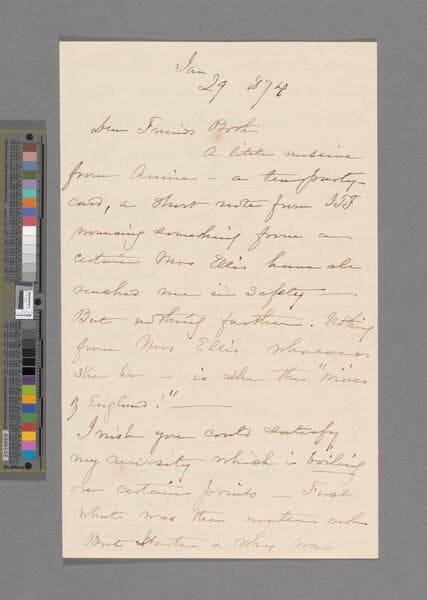 Jan
29 1874
Dear Friends Both
A little missive
from Annie - a tea party
card, a short note from J.T.F.
promising something from a
certain Mrs Ellis have all
reached me in safety —
But nothing further. Nothing
from Mrs Ellis whoever
she be — is she the "Wives
of England?" —
I wish you could satisfy
my curiosity which is boiling
on certain points — First
what was the matter with
Bret Harte & why was